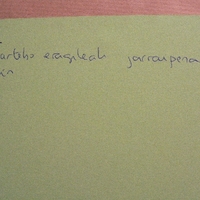 arteko eragileak jarraipena